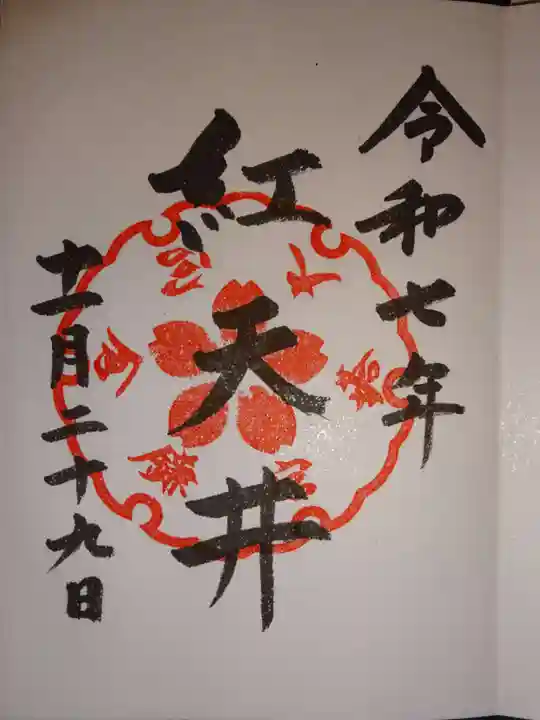 令和七年
紅天井
十一月二十九日